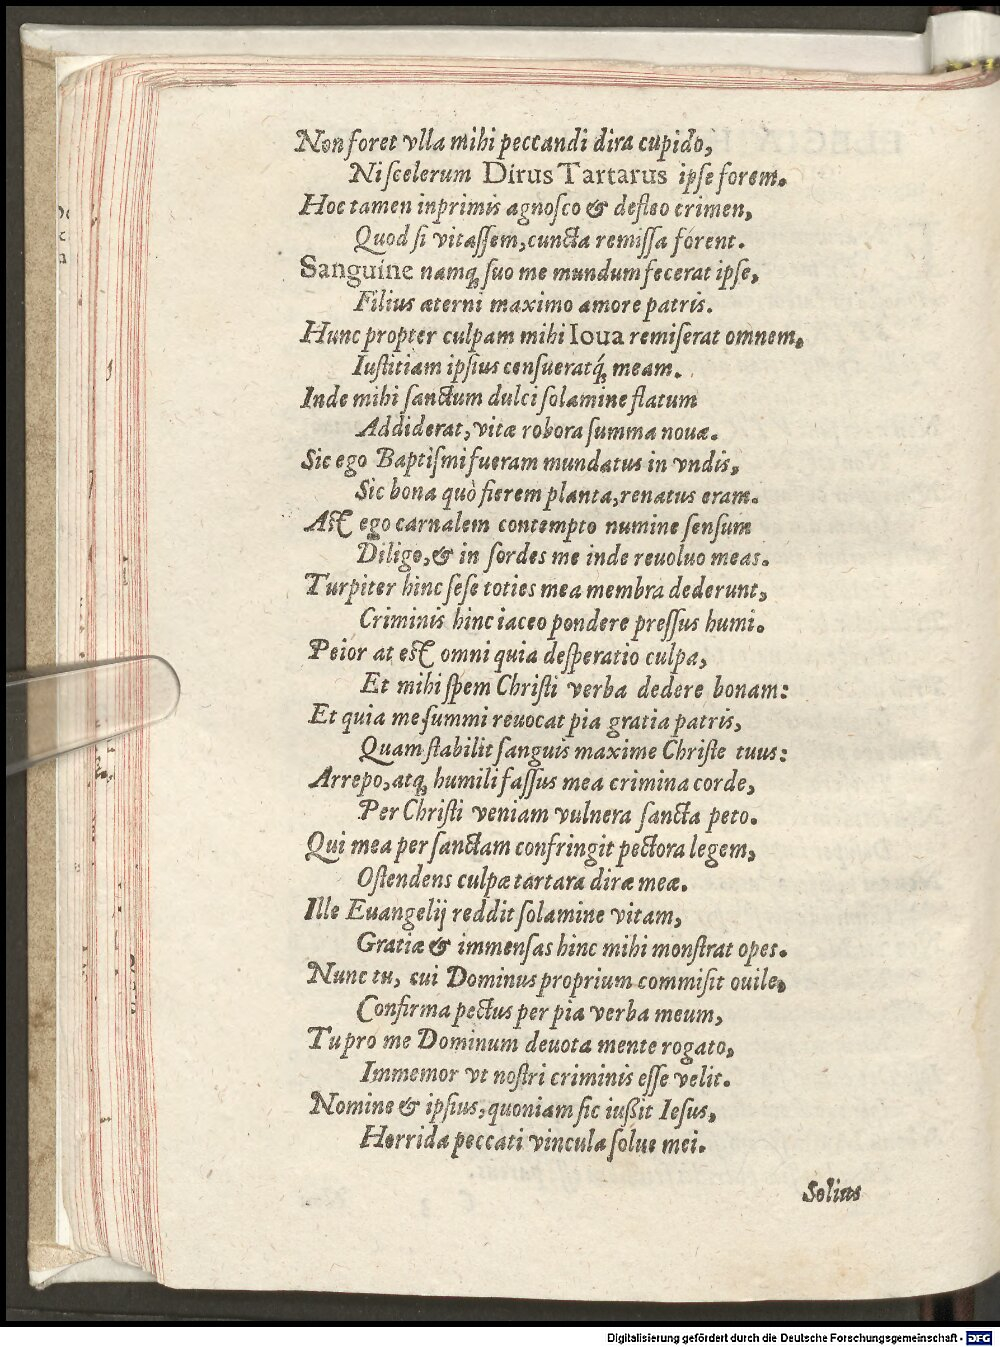 Non foret vlla mihi peccandi dira cupido,
Ni scelerum Dirus Tartarus ipse forem.
Hoc tamen inprimis agnosco & defleo crimen,
Quod si vitassem, cuncta remissa forent.
Sanguine namq́ suo me mundum fecerat ipse,
Filius æterni maximo amore patris.
Hunc propter culpam mihi Ioua remiserat omnem,
Iustitiam ipsius censueratq́ meam.
Inde mihi sanctum dulci solamine flatum
Addiderat, vitæ robora summa nouæ.
Sic ego Baptismi fueram mundatus in vndis,
Sic bona quò fierem planta, renatus eram.
Ast ego carnalem contempto numine sensum
Diligo, & in sordes me inde reuoluo meas.
Turpiter hinc sese toties mea membra dederunt,
Criminis hinc iaceo pondere pressus humi.
Peior at est omni quia desperatio culpa,
Et mihi spem Christi verba dedere bonam:
Et quia me summi reuocat pia gratia patris,
Quam stabilit sanguis maxime Christe tuus:
Arrepo, atq́ humili fassus mea crimina corde,
Per Christi veniam vulnera sancta peto.
Qui mea per sanctam confringit pectora legem,
Ostendens culpæ tartara diræ meæ.
Ille Euangelij reddit solamine vitam,
Gratiæ & immensas hinc mihi monstrat opes.
Nunc tu, cui Dominus proprium commisit ouile,
Confirma pectus per pia verba meum,
Tu pro me Dominum deuota mente rogato,
Immemor vt nostri criminis esse velit.
Nomine & ipsius, quoniam sic iußit Iesus,
Horrida peccati vincula solue mei.
Solius
Digitalisierung gefördert durch die Deutsche Forschungsgemeinschaft - DFG